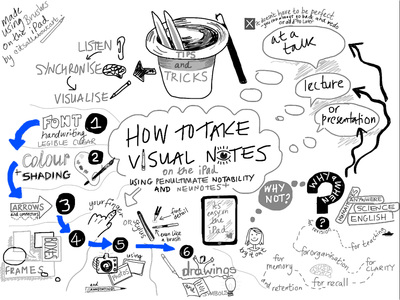 made
using Brushes
on the iPad
by
LISTEN
SYNCHRONISE
VISUALISE
TIPS
and
TRICKS
It doesn't have to be perfect
you can always go back and redo
at a
talk
lecture
or
presentation
FONT
handwriting
LEGIBLE CLEAR
1
Colour
+ SHADING
2
ARROWS
and connectors
3
4
5
6
FRAMES
HOW TO TAKE
VISUAL NOTES
on the iPad
USING PENULTIMATE NOTABILITY
AND NEUNOTES+
your finger
OR
even like
a brush
using
and
drawings
It's
easy on
the
iPad
WHY
NOT?
WHY
WHEN
?
ANYWHERE
SCIENCE
ENGLISH
for teaching
for organisation
for CLARITY
for
memory
and retention
for recall